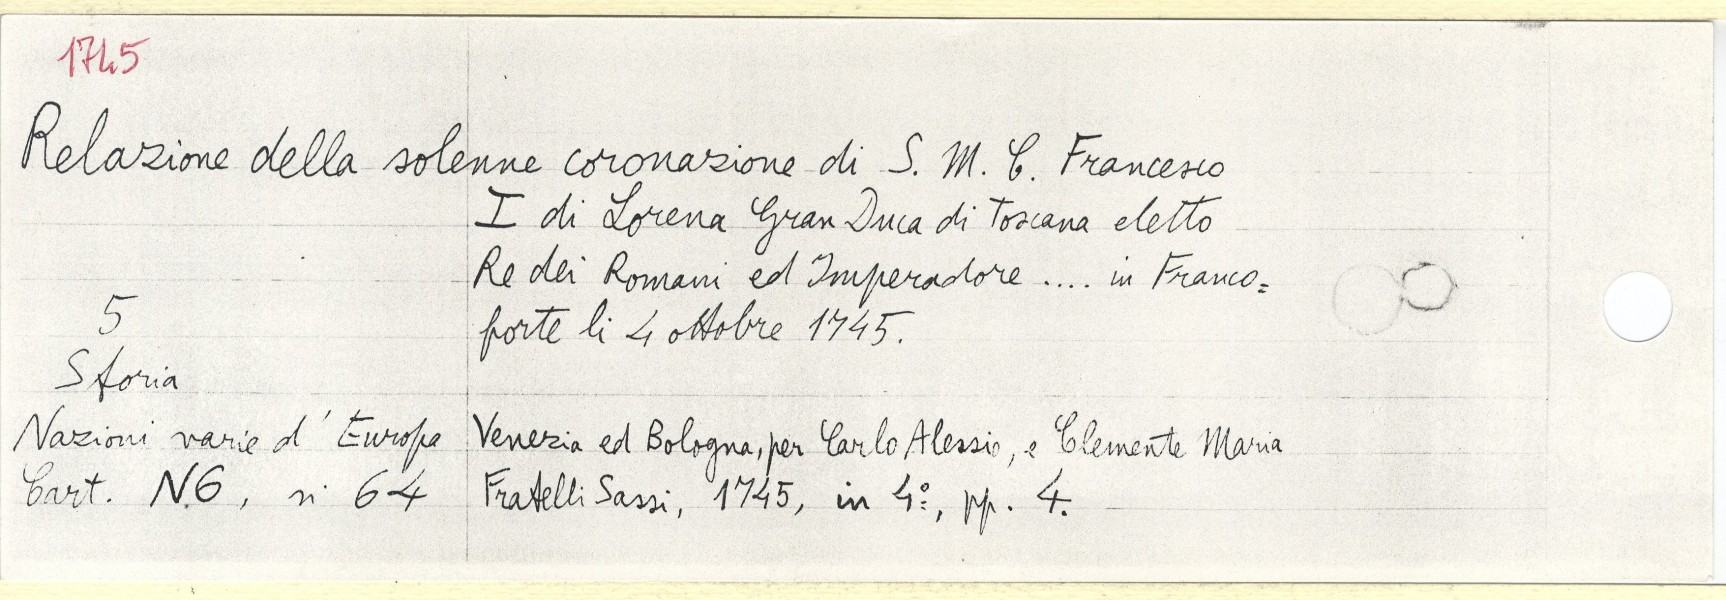 1745
Relazione della solenne coronazione di S. M. C. Francesco
I di Lorena Gran Duca di Toscana eletto
Re dei Romani ed Imperadore .... in Franco=
forte li 4 ottobre 1745.
5
Storia
Nazioni varie d'Europa
Cart. N6, ni 64
Venezia ed Bologna, per Carlo Alessio, e Clemente Maria
Fratelli Sassi, 1745, in 4º, pp. 4.